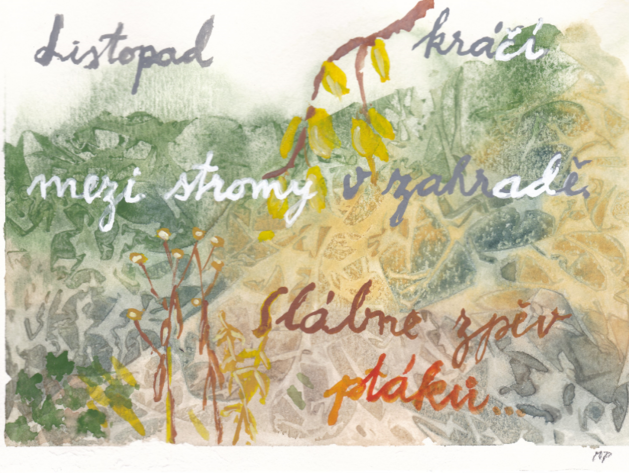 Listopad kráčí
mezi stromy v zahradě.
Slábne zpěv
ptáků...
MP